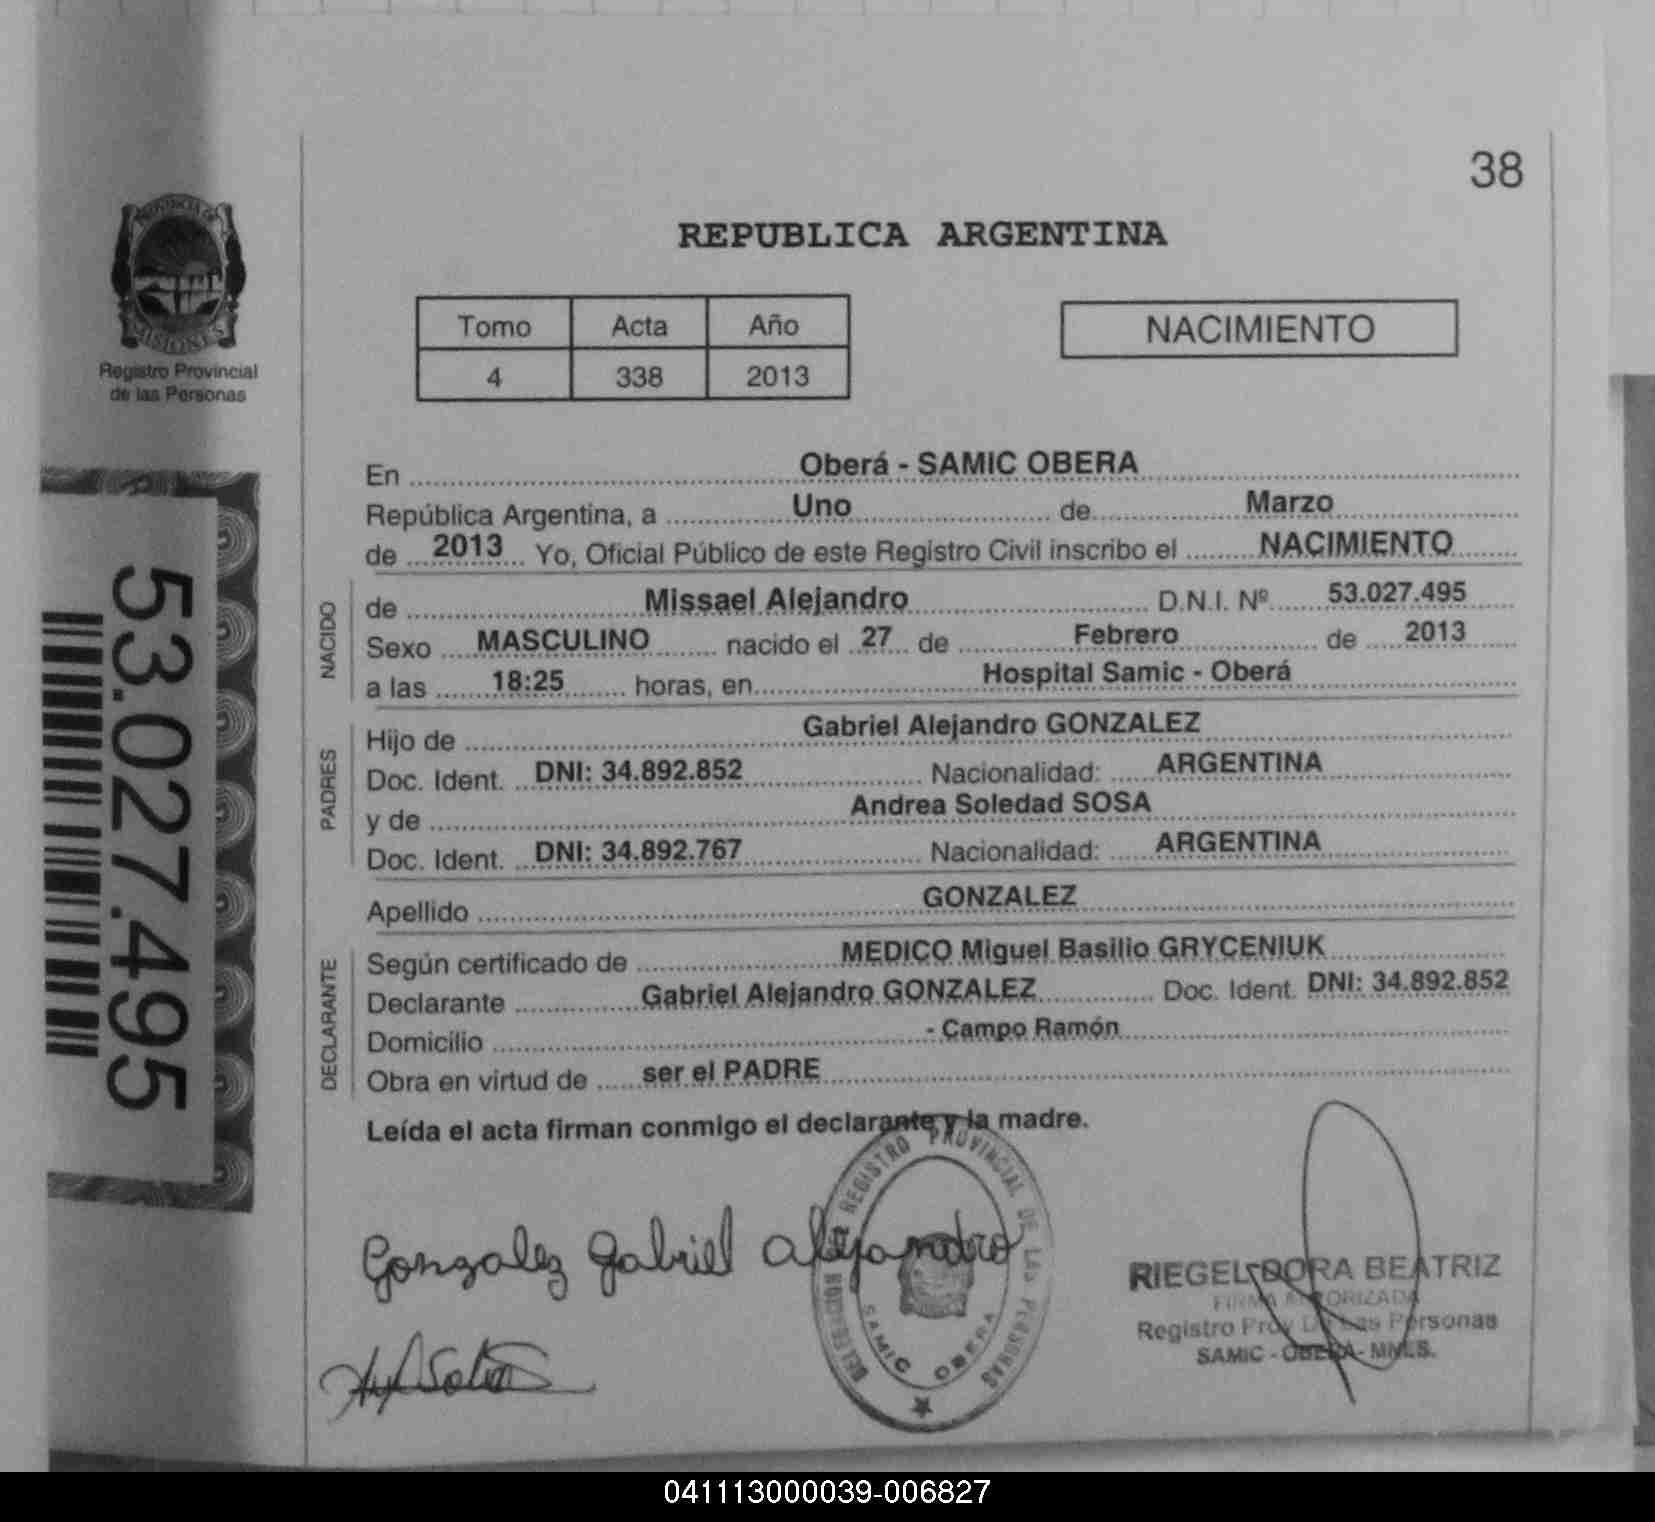 38
PROVINCIA DE
MISIONES
Registro Provincial
de las Personas
REPUBLICA ARGENTINA
Tomo Acta Año
4 338 2013
NACIMIENTO
53.027.495
En Oberá - SAMIC OBERA
República Argentina, a Uno de Marzo
de 2013 Yo, Oficial Público de este Registro Civil inscribo el NACIMIENTO
NACIDO
de Missael Alejandro D.N.I. Nº 53.027.495
Sexo MASCULINO nacido el 27 de Febrero de 2013
a las 18:25 horas, en Hospital Samic - Oberá
PADRES
Hijo de Gabriel Alejandro GONZALEZ
Doc. Ident. DNI: 34.892.852 Nacionalidad: ARGENTINA
y de Andrea Soledad SOSA
Doc. Ident. DNI: 34.892.767 Nacionalidad: ARGENTINA
Apellido GONZALEZ
DECLARANTE
Según certificado de MEDICO Miguel Basilio GRYCENIUK
Declarante Gabriel Alejandro GONZALEZ Doc. Ident. DNI: 34.892.852
Domicilio - Campo Ramón
Obra en virtud de ser el PADRE
Leída el acta firman conmigo el declarante y la madre.
Gonzalez Gabriel Alejandro
REGISTRO PROVINCIAL DE LAS PERSONAS
SAMIC OBERA
RIEGEL DORA BEATRIZ
FIRMA AUTORIZADA
Registro Prov De Las Personas
SAMIC - OBERA - MNES.
041113000039-006827